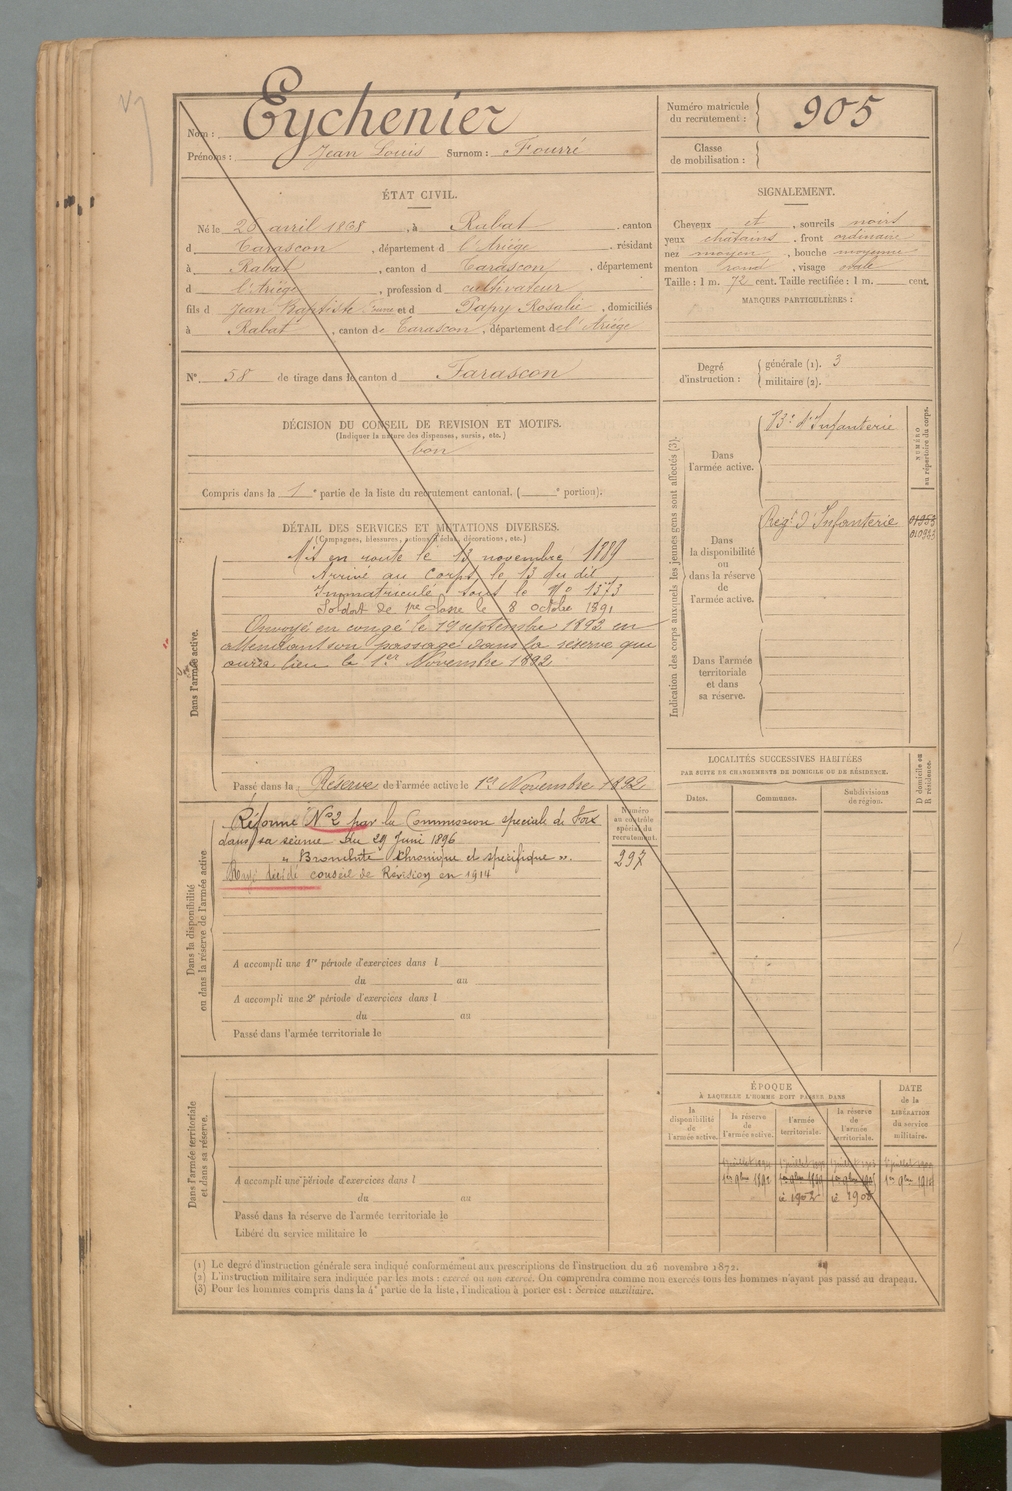 Nom : Eychenier
Prénoms : Jean Louis Surnom : Fourré
Numéro matricule du recrutement : 905
Classe de mobilisation :
ÉTAT CIVIL.
Né le 26 avril 1868, à Rabat, canton
d Tarascon, département d l'Ariège, résidant
à Rabat, canton d Tarascon, département
d l'Ariège, profession d cultivateur
fils d Jean Baptiste et d Papy Rosalie, domiciliés
à Rabat, canton de Tarascon, département de l'Ariège
N° 58 de tirage dans le canton d Tarascon
SIGNALEMENT.
Cheveux et, sourcils noirs
yeux châtains, front ordinaire
nez moyen, bouche moyenne
menton rond, visage ovale
Taille : 1 m. 72 cent. Taille rectifiée : 1 m. cent.
MARQUES PARTICULIÈRES :
Degré d'instruction : générale (1). 3
militaire (2).
DÉCISION DU CONSEIL DE REVISION ET MOTIFS.
(Indiquer la nature des dispenses, sursis, etc.)
bon
Compris dans la 1e partie de la liste du recrutement cantonal. ( e portion).
DÉTAIL DES SERVICES ET MUTATIONS DIVERSES.
(Campagnes, blessures, actions d'éclat, décorations, etc.)
Dans l'armée active.
Mis en route le 13 novembre 1889
Arrivé au Corps le 13 du dit
Immatriculé sous le No 1573
Soldat de 1re classe le 8 octobre 1891
Envoyé en congé le 19 septembre 1892 en
attendant son passage dans la réserve qui
aura lieu le 1er Novembre 1892
Passé dans la Réserve de l'armée active le 1er Novembre 1892
Indication des corps auxquels les jeunes gens sont affectés (3).
NUMÉRO au répertoire du corps.
Dans l'armée active.
Infanterie
Dans la disponibilité ou dans la réserve de l'armée active.
Regt d'Infanterie
Dans l'armée territoriale et dans sa réserve.
Dans la disponibilité ou dans la réserve de l'armée active
Réformé No 2 par la Commission spéciale de Foix
dans sa séance du 29 Juin 1896
« Bronchite chronique et spécifique ».
conseil de Révision en 1914
Numéro au contrôle spécial du recrutement.
297
A accompli une 1re période d'exercices dans l
du au
A accompli une 2e période d'exercices dans l
du au
Passé dans l'armée territoriale le
LOCALITÉS SUCCESSIVES HABITÉES
PAR SUITE DE CHANGEMENTS DE DOMICILE OU DE RÉSIDENCE.
Dates. Communes. Subdivisions de région. D domicile ou R résidence.
Dans l'armée territoriale et dans sa réserve.
A accompli une période d'exercices dans l
du au
Passé dans la réserve de l'armée territoriale le
Libéré du service militaire le
ÉPOQUE
À LAQUELLE L'HOMME DOIT PASSER DANS
la disponibilité de l'armée active.
la réserve de l'armée active.
l'armée territoriale.
la réserve de l'armée territoriale.
DATE de la LIBÉRATION du service militaire.
1er 9bre 1892
1902
(1) Le degré d'instruction générale sera indiqué conformément aux prescriptions de l'instruction du 26 novembre 1872.
(2) L'instruction militaire sera indiquée par les mots : exercé ou non exercé. On comprendra comme non exercés tous les hommes n'ayant pas passé au drapeau.
(3) Pour les hommes compris dans la 4e partie de la liste, l'indication à porter est : Service auxiliaire.